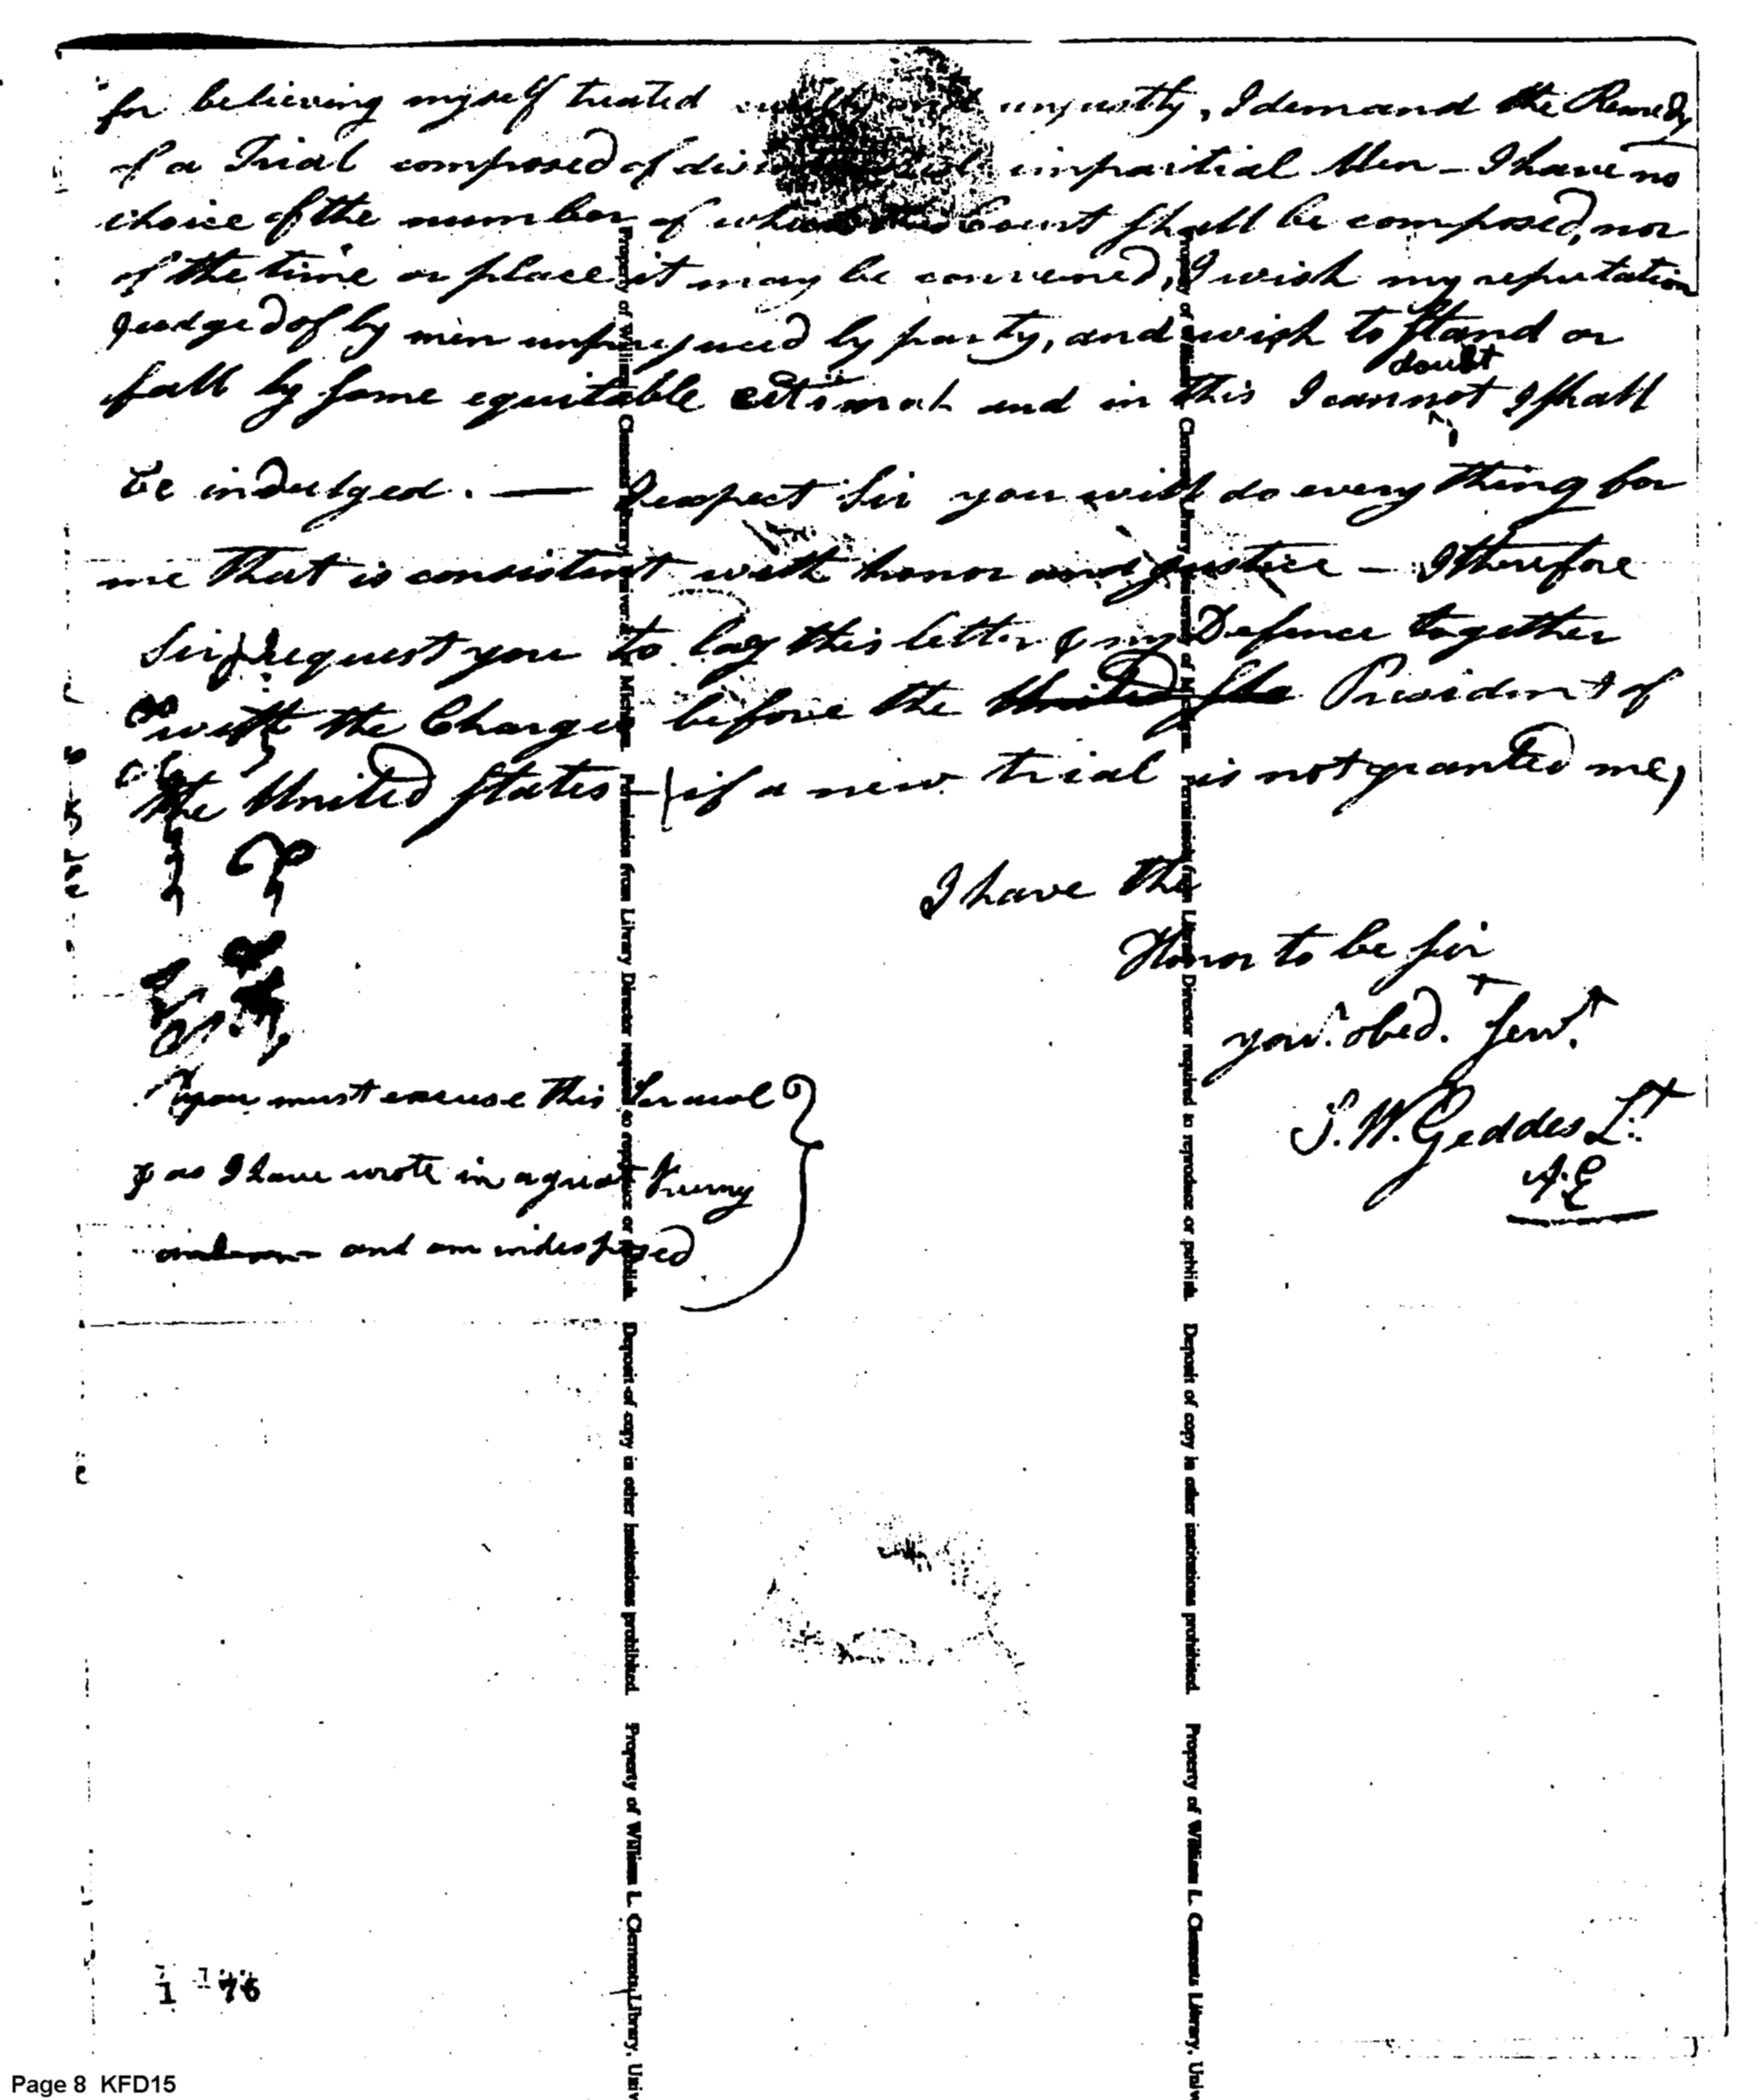 for believing myself treated unjustly, I demand the Remedy
of a Trial composed of impartial Men – I have no
choice of the number of Court shall be composed, nor
of the time or place it may be convened, I wish my reputation
judged of by men by party, and wish to stand or
fall by some equitable and in this I cannot doubt I shall
be indulged. — I expect Sir you will do every thing for
me that is consistent with honor and justice – I therefore
Sir request you to lay this letter & my Defence together
with the Charges before the United Sta President of
the United States – (if a new trial is not granted me)
I have the
Honor to be Sir
your. obed.t Serv.t
S. W. Geddes L.t
A. E
you must excuse this Scrawl
& as I have wrote in a great hurry
and am indisposed
Property of William L. Clements Library, University of Michigan. Permission from Library Director required to reproduce or publish. Deposit of copy in other institutions prohibited. Property of William L. Clements Library, Univ
Property of William L. Clements Library, University of Michigan. Permission from Library Director required to reproduce or publish. Deposit of copy in other institutions prohibited. Property of William L. Clements Library, Univ
Page 8 KFD15